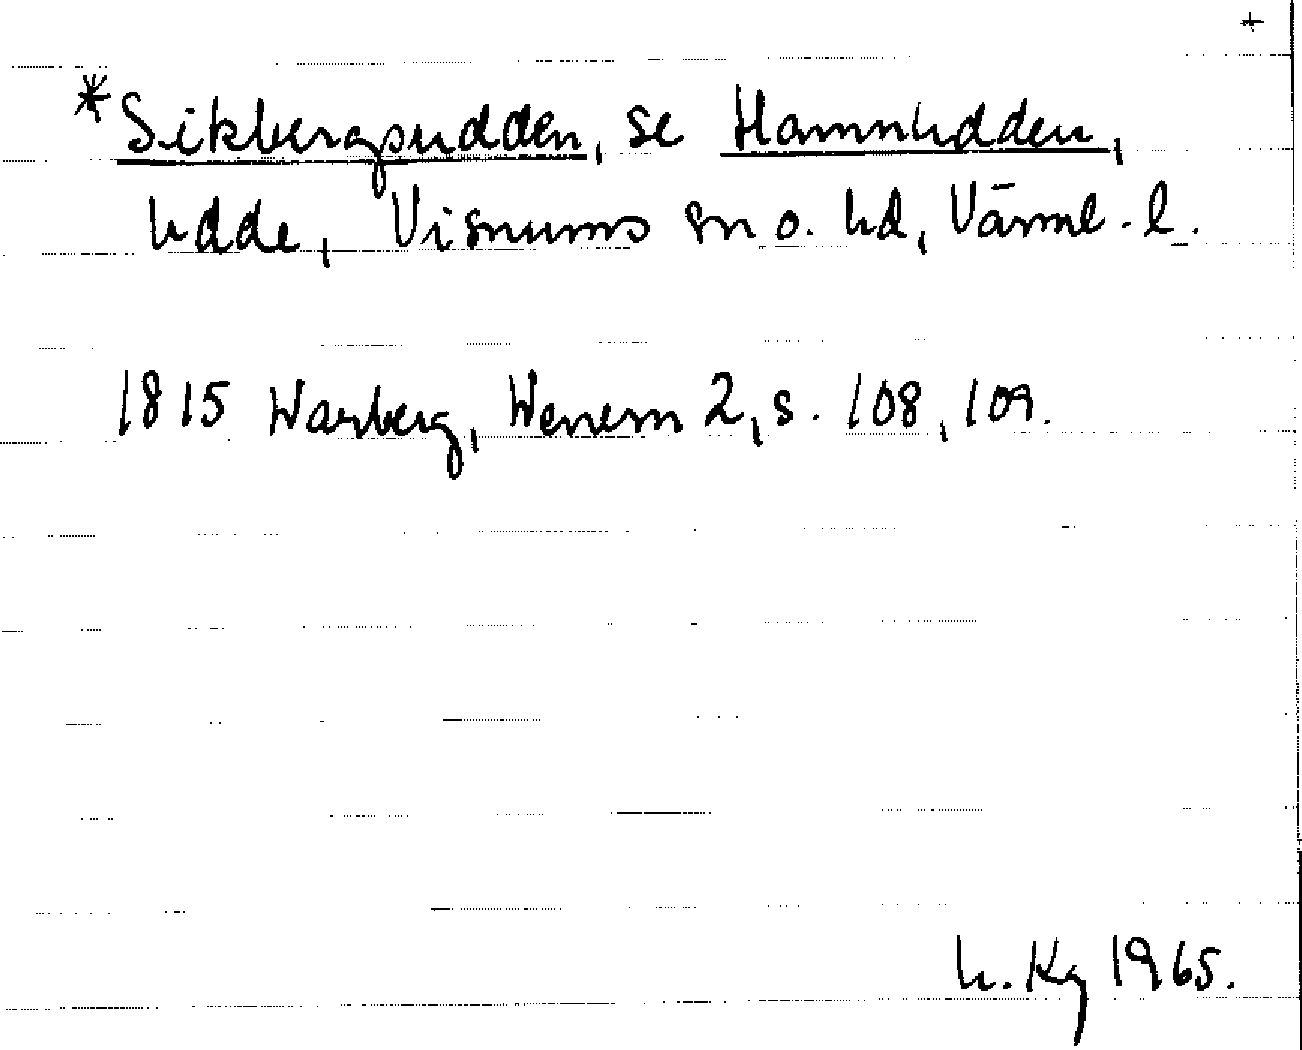 +
*Sikbergsudden, se Hamnudden,
udde, Visnums sn o. hd, Värml. l.
1815 Warberg, Wenern 2, s. 108, 109.
h. Kg 1965.